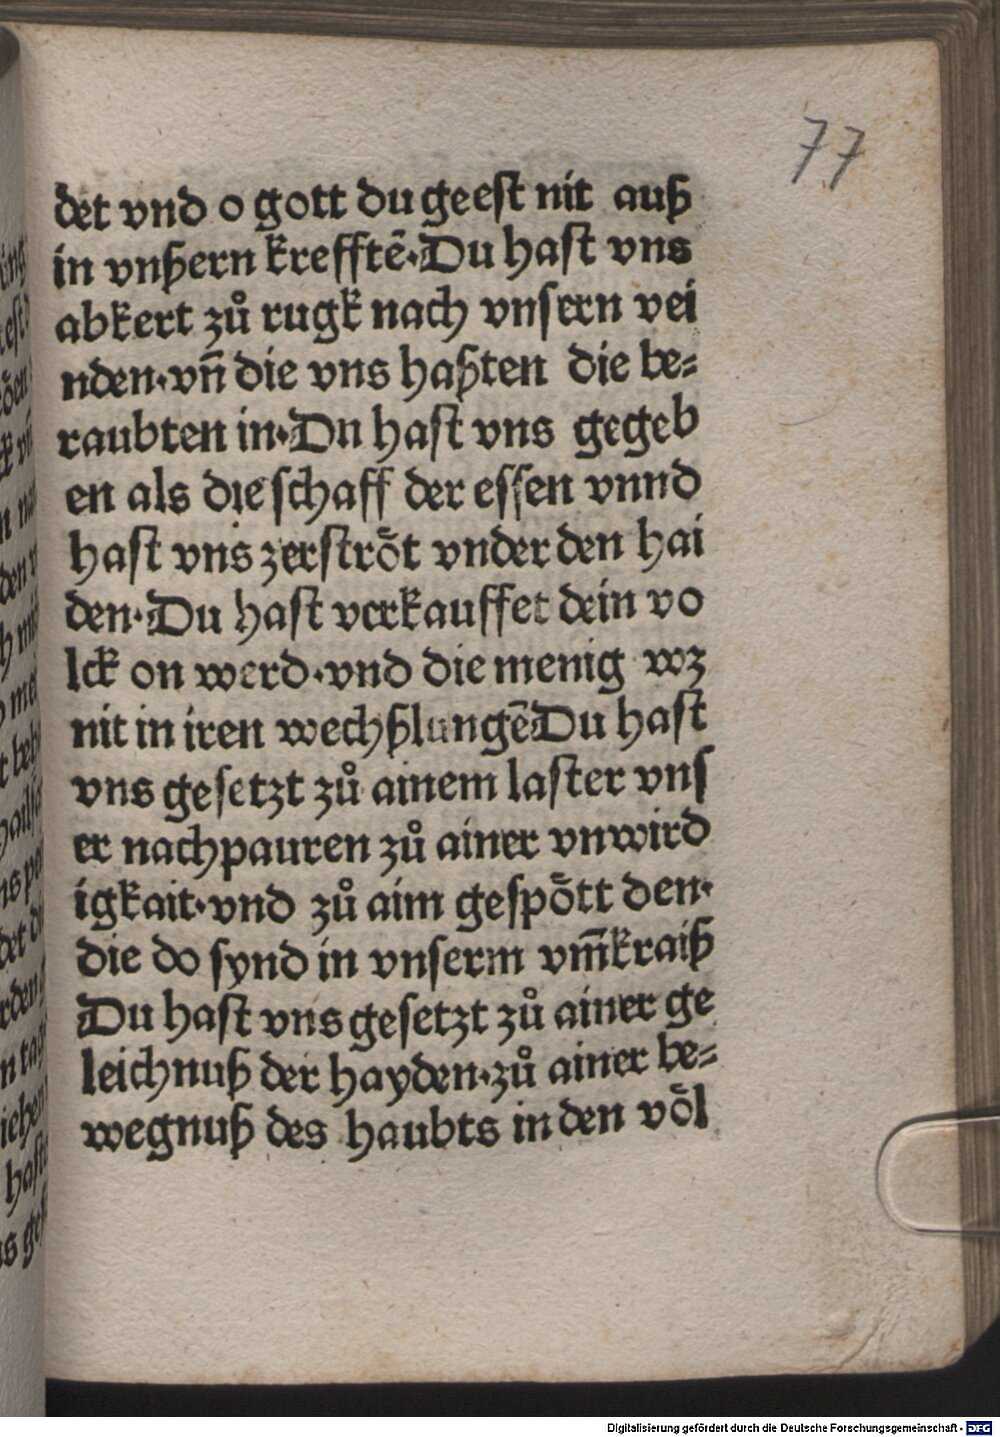 77
det vnd o gott du geest nit auß
in vnßern krefftē·Du hast vns
abkert zů rugk nach vnsern vei
nden·vn̄ die vns haßten die be-
raubten in·Dn hast vns gegeb
en als die schaff der essen vnnd
hast vns zerströt vnder den hai
den·Du hast verkauffet dein vo
lck on werd·vnd die menig wz
nit in iren wechßlungē Du hast
vns gesetzt zů ainem laster vns
er nachpauren zů ainer vnwird
igkait·vnd zů aim gespött den·
die do synd in vnserm vm̄kraiß
Du hast vns gesetzt zů ainer ge
leichnuß der hayden·zů ainer be-
wegnuß des haubts in den völ
Digitalisierung gefördert durch die Deutsche Forschungsgemeinschaft - DFG